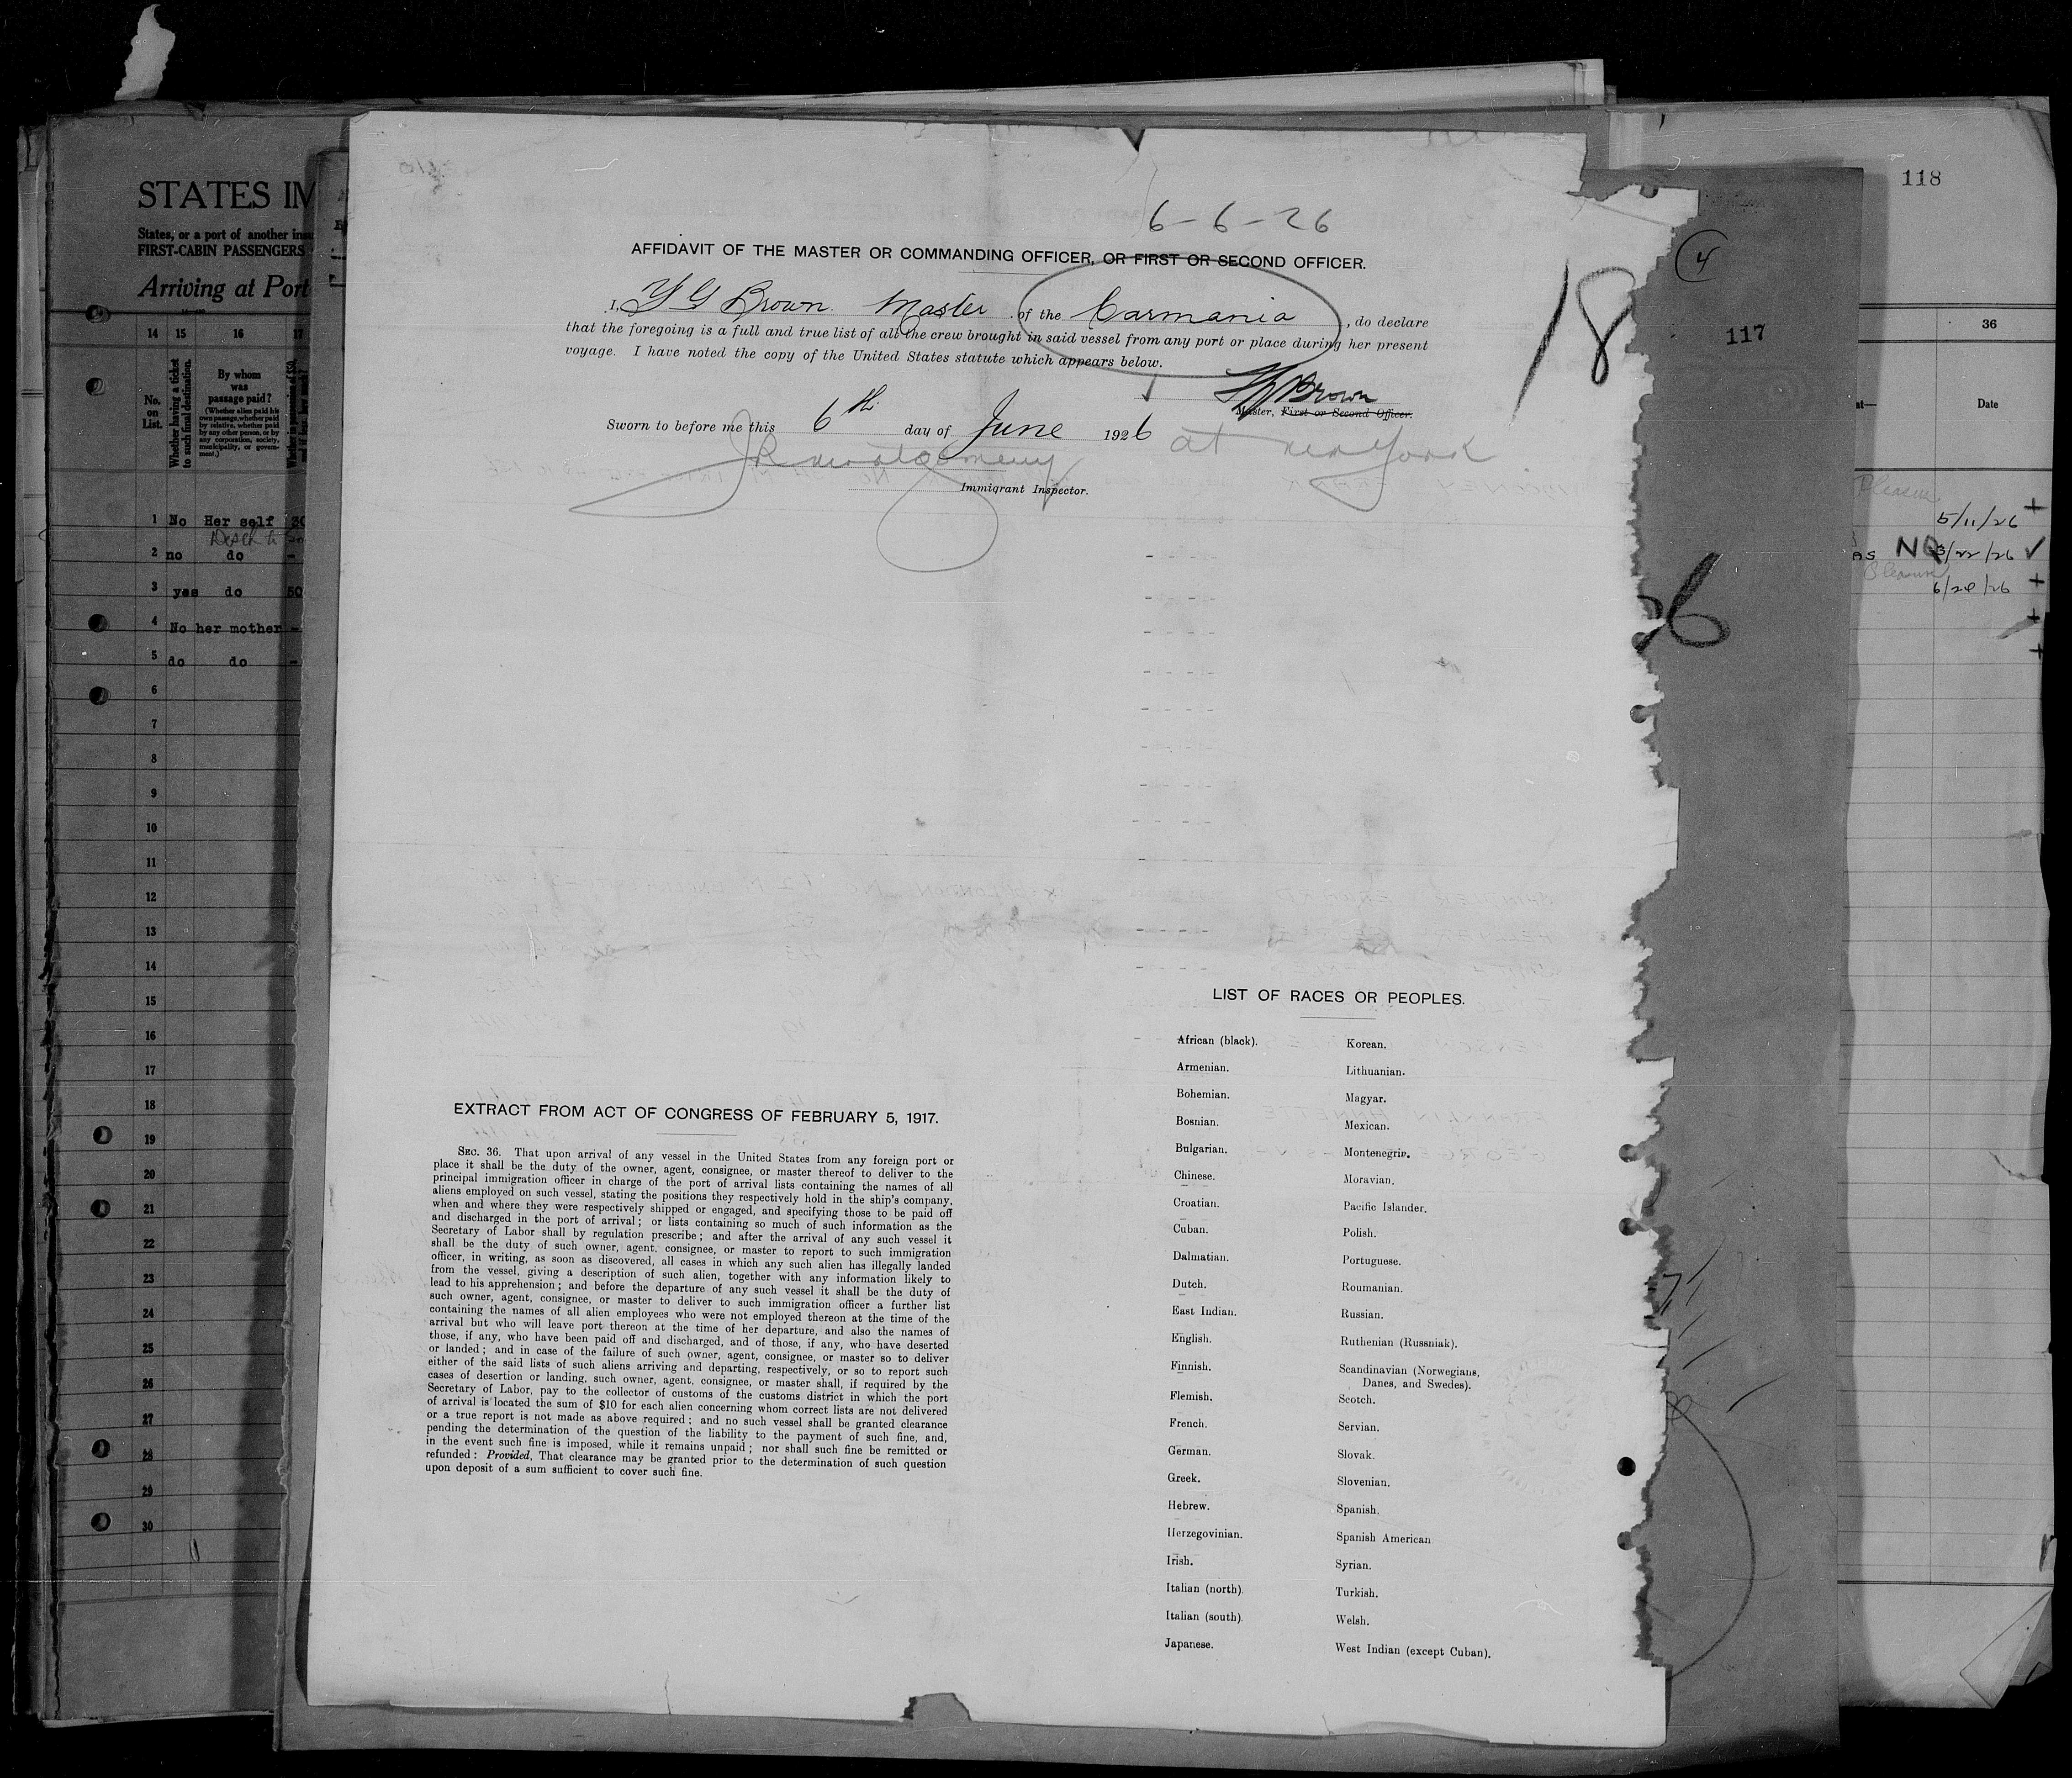 STATES IM
States, or a port of another insu
FIRST-CABIN PASSENGERS
Arriving at Port
14 15 16 17
No. on List.
Whether having a ticket to such final destination.
By whom was passage paid?
(Whether alien paid his own passage, whether paid by relative, whether paid by any other person, or by any corporation, society, municipality, or government.)
1 No Her self 30
2 no do -
3 yes do 50
4 No her mother -
5 do do -
6
7
8
9
10
11
12
13
14
15
16
17
18
19
20
21
22
23
24
25
26
27
28
29
30
6-6-26
AFFIDAVIT OF THE MASTER OR COMMANDING OFFICER, OR FIRST OR SECOND OFFICER.
I, Brown. Master of the Carmania, do declare
that the foregoing is a full and true list of all the crew brought in said vessel from any port or place during her present
voyage. I have noted the copy of the United States statute which appears below.
Brown
Master, First or Second Officer.
Sworn to before me this 6th day of June 1926 at New York
Montgomery
Immigrant Inspector.
18
EXTRACT FROM ACT OF CONGRESS OF FEBRUARY 5, 1917.
SEC. 36. That upon arrival of any vessel in the United States from any foreign port or
place it shall be the duty of the owner, agent, consignee, or master thereof to deliver to the
principal immigration officer in charge of the port of arrival lists containing the names of all
aliens employed on such vessel, stating the positions they respectively hold in the ship's company,
when and where they were respectively shipped or engaged, and specifying those to be paid off
and discharged in the port of arrival; or lists containing so much of such information as the
Secretary of Labor shall by regulation prescribe; and after the arrival of any such vessel it
shall be the duty of such owner, agent, consignee, or master to report to such immigration
officer, in writing, as soon as discovered, all cases in which any such alien has illegally landed
from the vessel, giving a description of such alien, together with any information likely to
lead to his apprehension; and before the departure of any such vessel it shall be the duty of
such owner, agent, consignee, or master to deliver to such immigration officer a further list
containing the names of all alien employees who were not employed thereon at the time of the
arrival but who will leave port thereon at the time of her departure, and also the names of
those, if any, who have been paid off and discharged, and of those, if any, who have deserted
or landed; and in case of the failure of such owner, agent, consignee, or master so to deliver
either of the said lists of such aliens arriving and departing, respectively, or so to report such
cases of desertion or landing, such owner, agent, consignee, or master shall, if required by the
Secretary of Labor, pay to the collector of customs of the customs district in which the port
of arrival is located the sum of $10 for each alien concerning whom correct lists are not delivered
or a true report is not made as above required; and no such vessel shall be granted clearance
pending the determination of the question of the liability to the payment of such fine, and,
in the event such fine is imposed, while it remains unpaid; nor shall such fine be remitted or
refunded: Provided, That clearance may be granted prior to the determination of such question
upon deposit of a sum sufficient to cover such fine.
LIST OF RACES OR PEOPLES.
African (black). Korean.
Armenian. Lithuanian.
Bohemian. Magyar.
Bosnian. Mexican.
Bulgarian. Montenegrin.
Chinese. Moravian.
Croatian. Pacific Islander.
Cuban. Polish.
Dalmatian. Portuguese.
Dutch. Roumanian.
East Indian. Russian.
English. Ruthenian (Russniak).
Finnish. Scandinavian (Norwegians,
Danes, and Swedes).
Flemish. Scotch.
French. Servian.
German. Slovak.
Greek. Slovenian.
Hebrew. Spanish.
Herzegovinian. Spanish American
Irish. Syrian.
Italian (north). Turkish.
Italian (south). Welsh.
Japanese. West Indian (except Cuban).
4
117
118
36
Date
Pleasure
5/11/26 +
NO 3/22/26 ✓
Pleasure
6/28/26 +